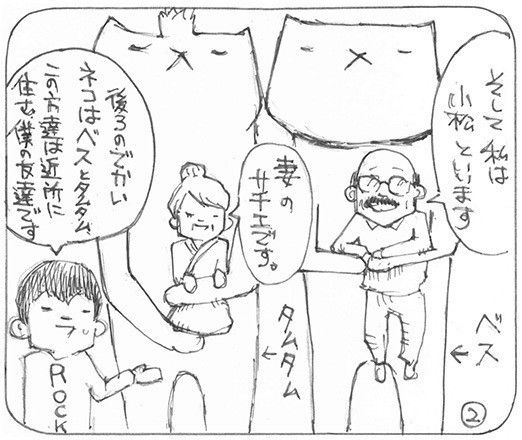 そして私は
小松といいます
妻の
サチエです。
後ろのでかい
ネコはベスとタムタム
この方達は近所に
住む僕の友達です
ベス
←
タムタム
←
ROCK
②